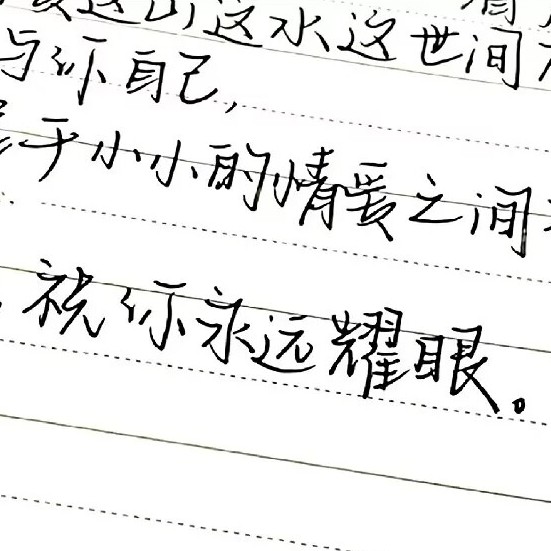 这山这水这世间
与你自己,
于小小的情爱之间
祝你永远耀眼。